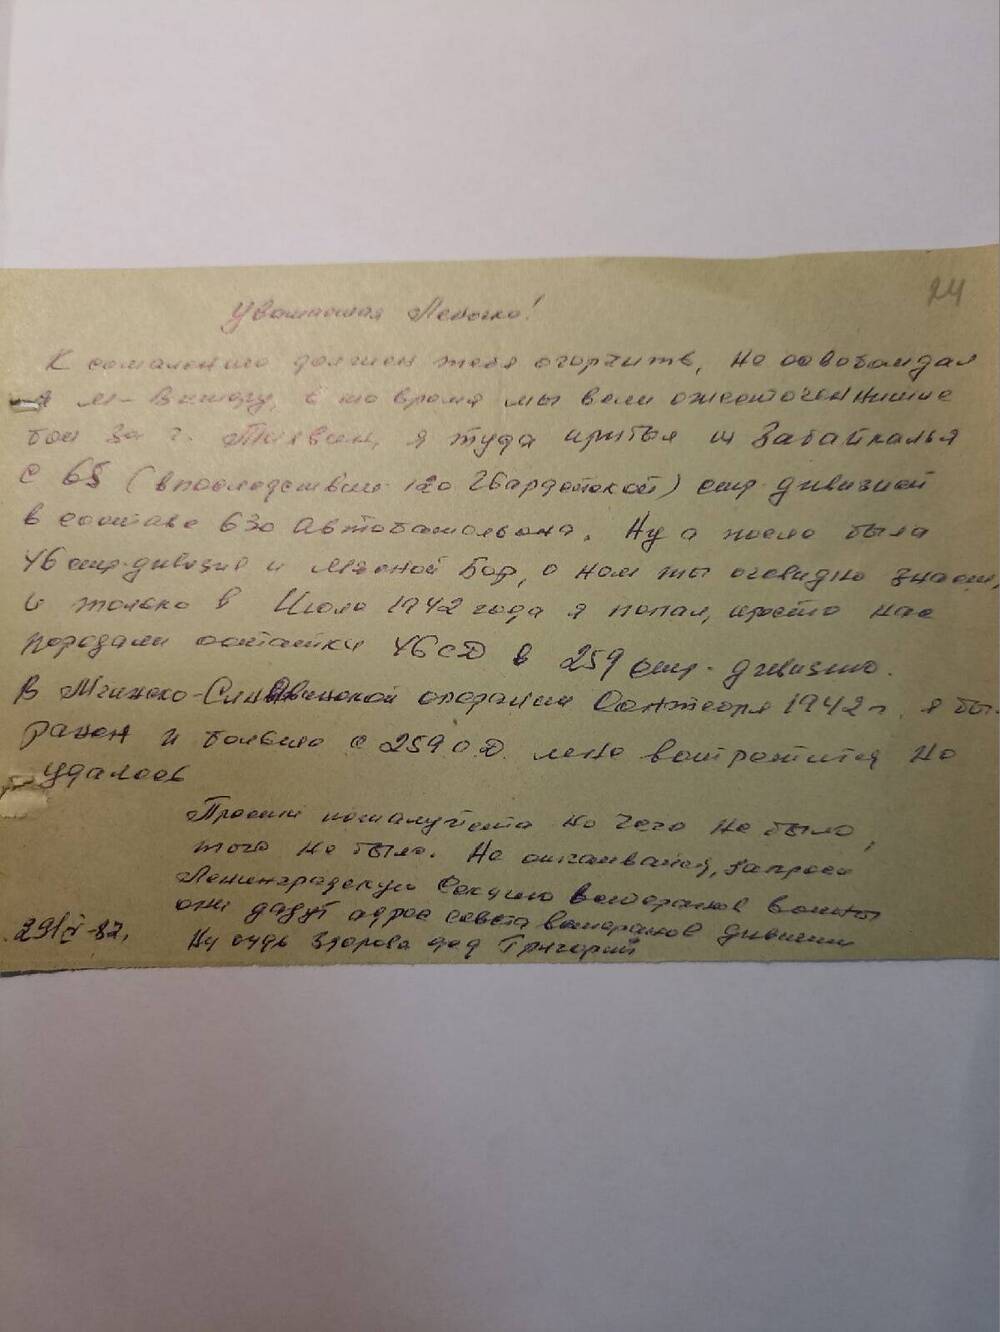 24
Уважаемая Леночка!
К сожалению должен тебя огорчить, не освобождал
я М-Вишеру, в то время мы вели ожесточеннишие
бои за г. Тихвин, я туда прибыл из Забайкалья
с 65 (впоследствии 120 Гвардейской) стр. дивизией
в составе 630 Автобатальона. Ну а после была
46 стр. дивизия и Мясной Бор, о нем ты очевидно знаеш,
и только в Июле 1942 года я попал, просто нас
передали остатки 46 СД в 259 стр. дивизию.
В Мгинско-Синявинской операции Сентября 1942 г. я был
ранен и больше с 259 С.Д. мне встретится не
удалось
Прости пожалуйста но чего не было,
того не было. Не отчаивайся, запроси
Ленинградскую Секцию ветеранов войны
они дадут адрес совета ветеранов дивизии
29/ -87. Ну будь здорова дед Григорий